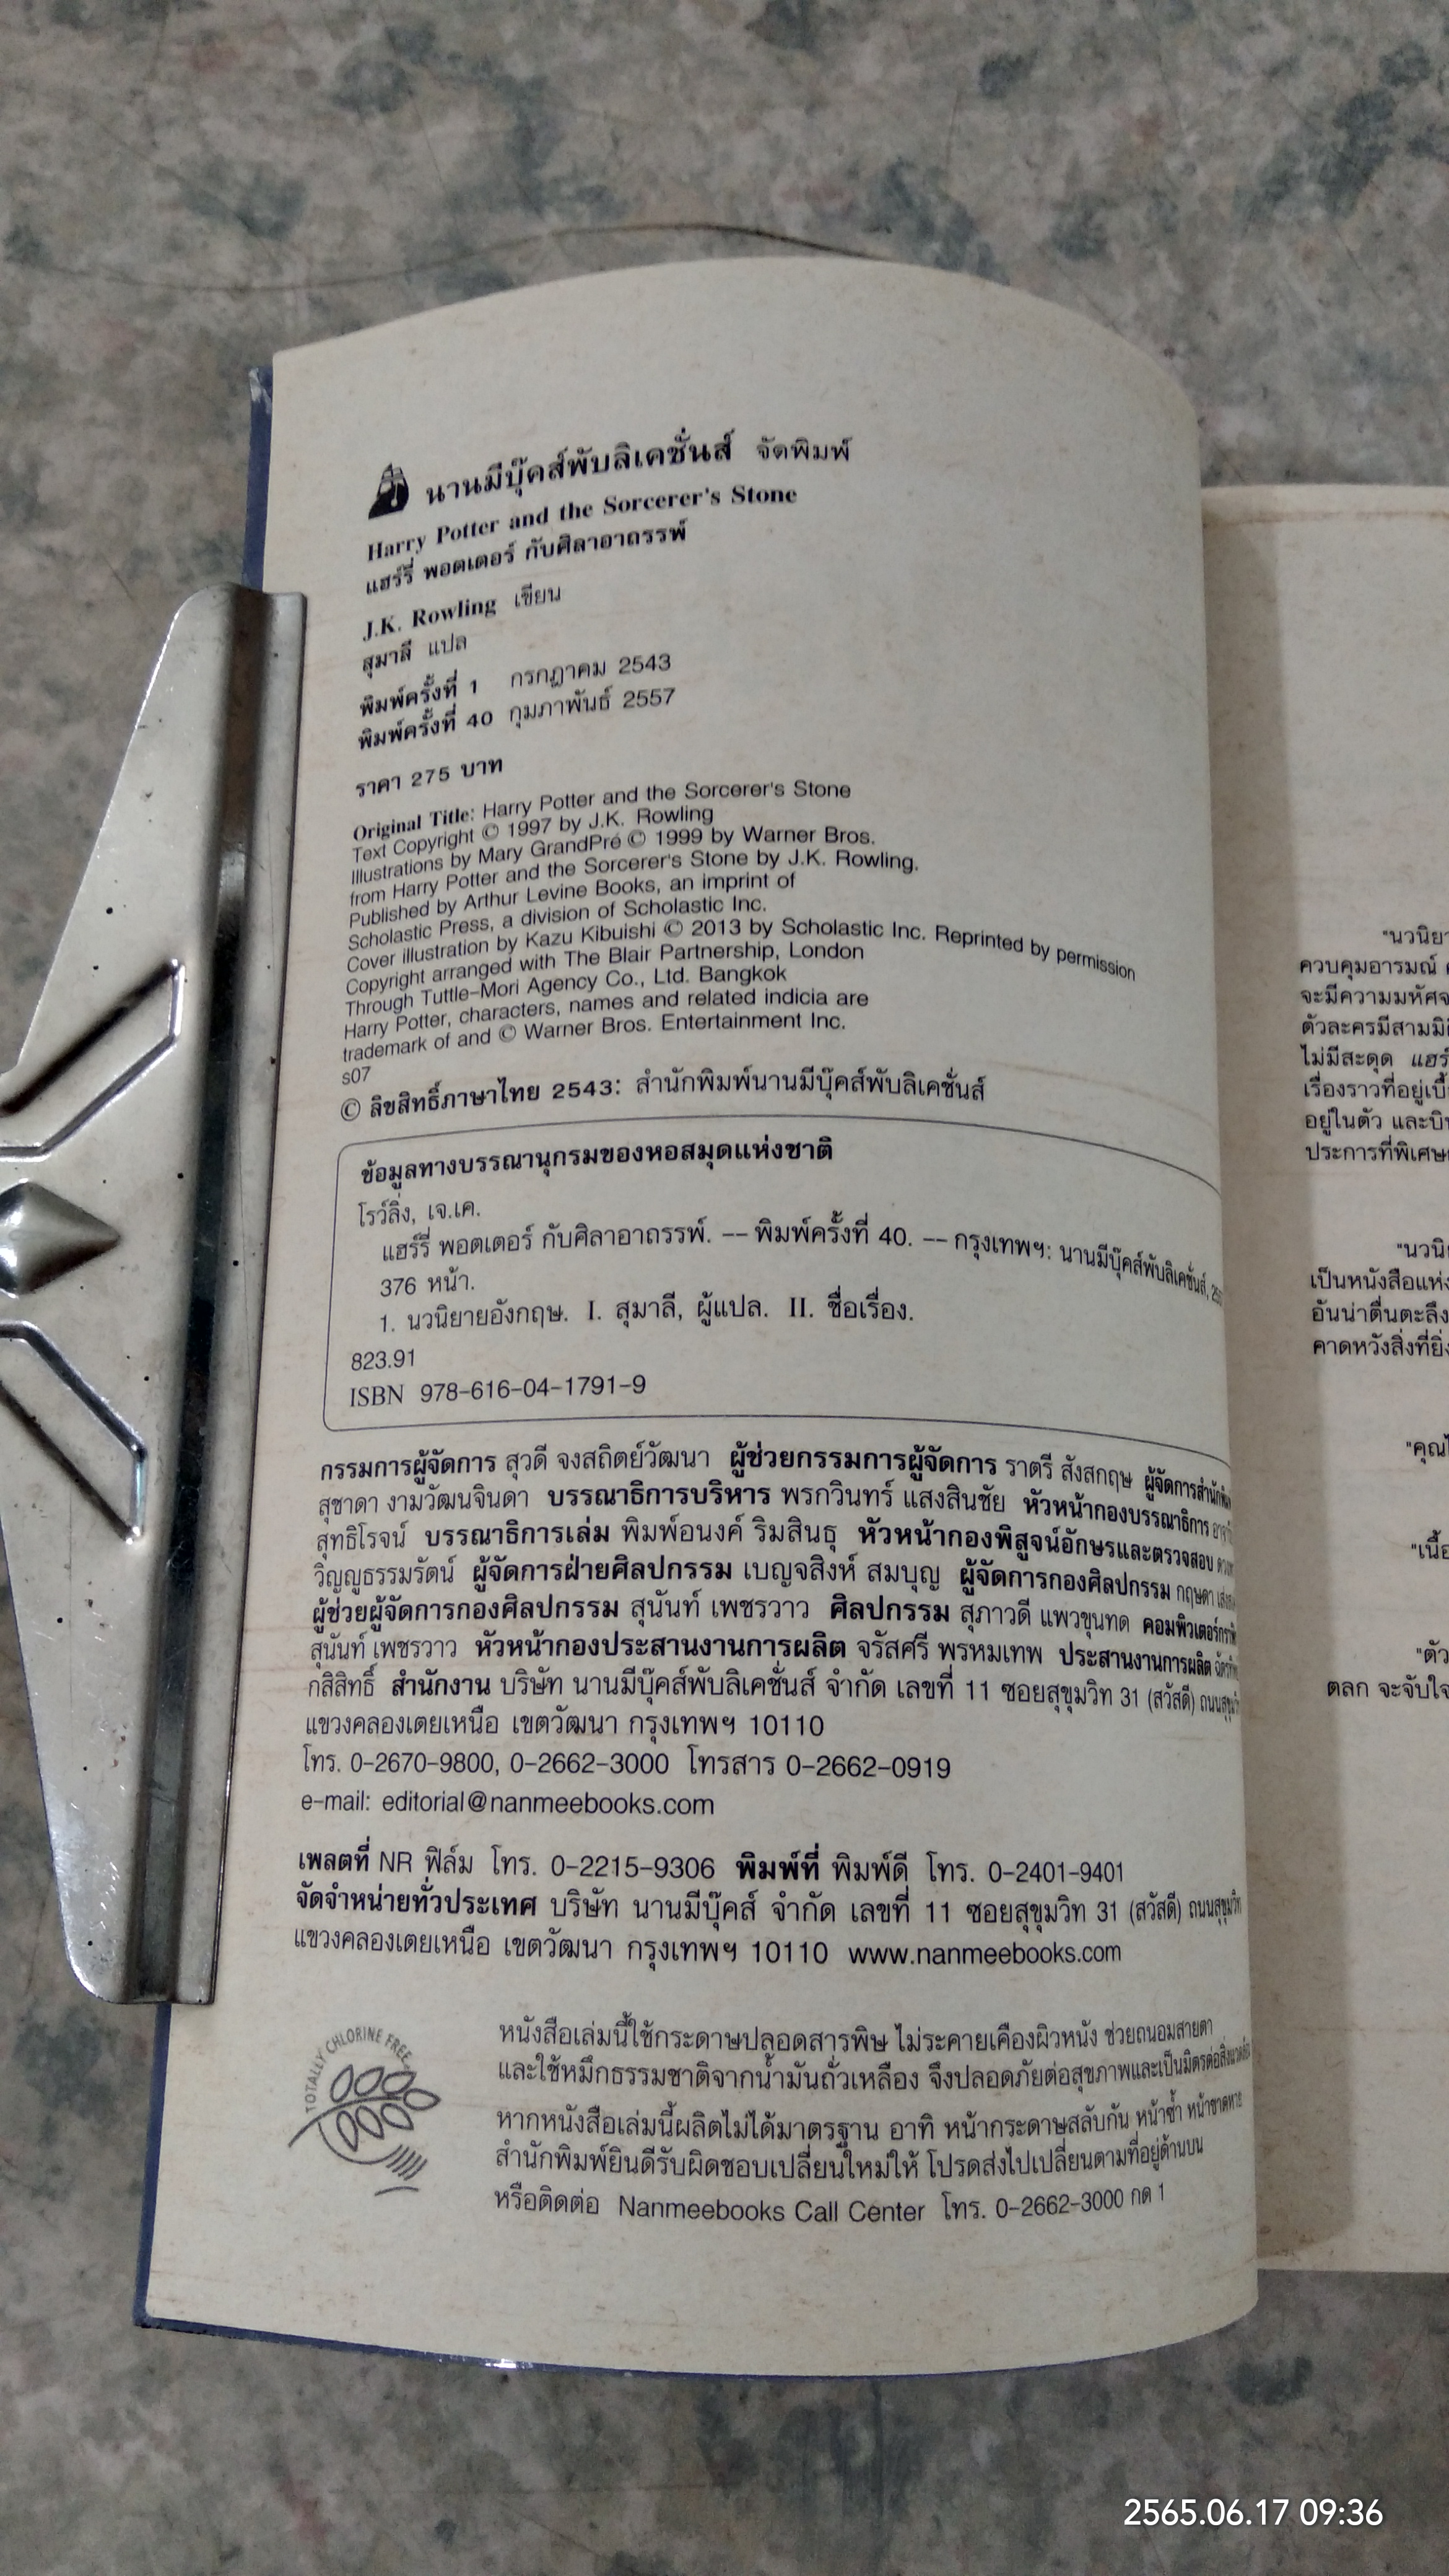 นานมีบุ๊คส์พับลิเคชั่นส์ จัดพิมพ์
Harry Potter and the Sorcerer's Stone
แฮร์รี่ พอตเตอร์ กับศิลาอาถรรพ์
J.K. Rowling เขียน
สุมาลี แปล
พิมพ์ครั้งที่ 1 กรกฎาคม 2543
พิมพ์ครั้งที่ 40 กุมภาพันธ์ 2557
ราคา 275 บาท
Original Title: Harry Potter and the Sorcerer's Stone
Text Copyright © 1997 by J.K. Rowling
Illustrations by Mary GrandPré © 1999 by Warner Bros.
from Harry Potter and the Sorcerer's Stone by J.K. Rowling.
Published by Arthur Levine Books, an imprint of
Scholastic Press, a division of Scholastic Inc.
Cover illustration by Kazu Kibuishi © 2013 by Scholastic Inc. Reprinted by permission
Copyright arranged with The Blair Partnership, London
Through Tuttle-Mori Agency Co., Ltd. Bangkok
Harry Potter, characters, names and related indicia are
trademark of and © Warner Bros. Entertainment Inc.
s07
© ลิขสิทธิ์ภาษาไทย 2543: สำนักพิมพ์นานมีบุ๊คส์พับลิเคชั่นส์
ข้อมูลทางบรรณานุกรมของหอสมุดแห่งชาติ
โรว์ลิ่ง, เจ.เค.
แฮร์รี่ พอตเตอร์ กับศิลาอาถรรพ์. -- พิมพ์ครั้งที่ 40. -- กรุงเทพฯ: นานมีบุ๊คส์พับลิเคชั่นส์,
376 หน้า.
1. นวนิยายอังกฤษ. I. สุมาลี, ผู้แปล. II. ชื่อเรื่อง.
823.91
ISBN 978-616-04-1791-9
กรรมการผู้จัดการ สุวดี จงสถิตย์วัฒนา ผู้ช่วยกรรมการผู้จัดการ ราตรี สังสกฤษ ผู้จัดการสำนักพิมพ์
สุชาดา งามวัฒนจินดา บรรณาธิการบริหาร พรกวินทร์ แสงสินชัย หัวหน้ากองบรรณาธิการ
สุทธิโรจน์ บรรณาธิการเล่ม พิมพ์อนงค์ ริมสินธุ หัวหน้ากองพิสูจน์อักษรและตรวจสอบ
วิญญูธรรมรัตน์ ผู้จัดการฝ่ายศิลปกรรม เบญจสิงห์ สมบุญ ผู้จัดการกองศิลปกรรม กฤษดา
ผู้ช่วยผู้จัดการกองศิลปกรรม สุนันท์ เพชรวาว ศิลปกรรม สุภาวดี แพวขุนทด คอมพิวเตอร์กราฟิก
สุนันท์ เพชรวาว หัวหน้ากองประสานงานการผลิต จรัสศรี พรหมเทพ ประสานงานการผลิต
กสิสิทธิ์ สำนักงาน บริษัท นานมีบุ๊คส์พับลิเคชั่นส์ จำกัด เลขที่ 11 ซอยสุขุมวิท 31 (สวัสดี) ถนนสุขุมวิท
แขวงคลองเตยเหนือ เขตวัฒนา กรุงเทพฯ 10110
โทร. 0-2670-9800, 0-2662-3000 โทรสาร 0-2662-0919
e-mail: editorial@nanmeebooks.com
เพลตที่ NR ฟิล์ม โทร. 0-2215-9306 พิมพ์ที่ พิมพ์ดี โทร. 0-2401-9401
จัดจำหน่ายทั่วประเทศ บริษัท นานมีบุ๊คส์ จำกัด เลขที่ 11 ซอยสุขุมวิท 31 (สวัสดี) ถนนสุขุมวิท
แขวงคลองเตยเหนือ เขตวัฒนา กรุงเทพฯ 10110 www.nanmeebooks.com
TOTALLY CHLORINE FREE
หนังสือเล่มนี้ใช้กระดาษปลอดสารพิษ ไม่ระคายเคืองผิวหนัง ช่วยถนอมสายตา
และใช้หมึกธรรมชาติจากน้ำมันถั่วเหลือง จึงปลอดภัยต่อสุขภาพและเป็นมิตรต่อสิ่งแวดล้อม
หากหนังสือเล่มนี้ผลิตไม่ได้มาตรฐาน อาทิ หน้ากระดาษสลับกัน หน้าซ้ำ หน้าขาดหาย
สำนักพิมพ์ยินดีรับผิดชอบเปลี่ยนใหม่ให้ โปรดส่งไปเปลี่ยนตามที่อยู่ด้านบน
หรือติดต่อ Nanmeebooks Call Center โทร. 0-2662-3000 กด 1
"นวนิยา
ควบคุมอารมณ์
จะมีความมหัศจ
ตัวละครมีสามมิ
ไม่มีสะดุด แฮร์
เรื่องราวที่อยู่เบื้
อยู่ในตัว และบิ
ประการที่พิเศษ
"นวนิ
เป็นหนังสือแห่ง
อันน่าตื่นตะลึง
คาดหวังสิ่งที่ยิ่ง
"คุณ
"เนื้อ
"ตัว
ตลก จะจับใจ
2565.06.17 09:36